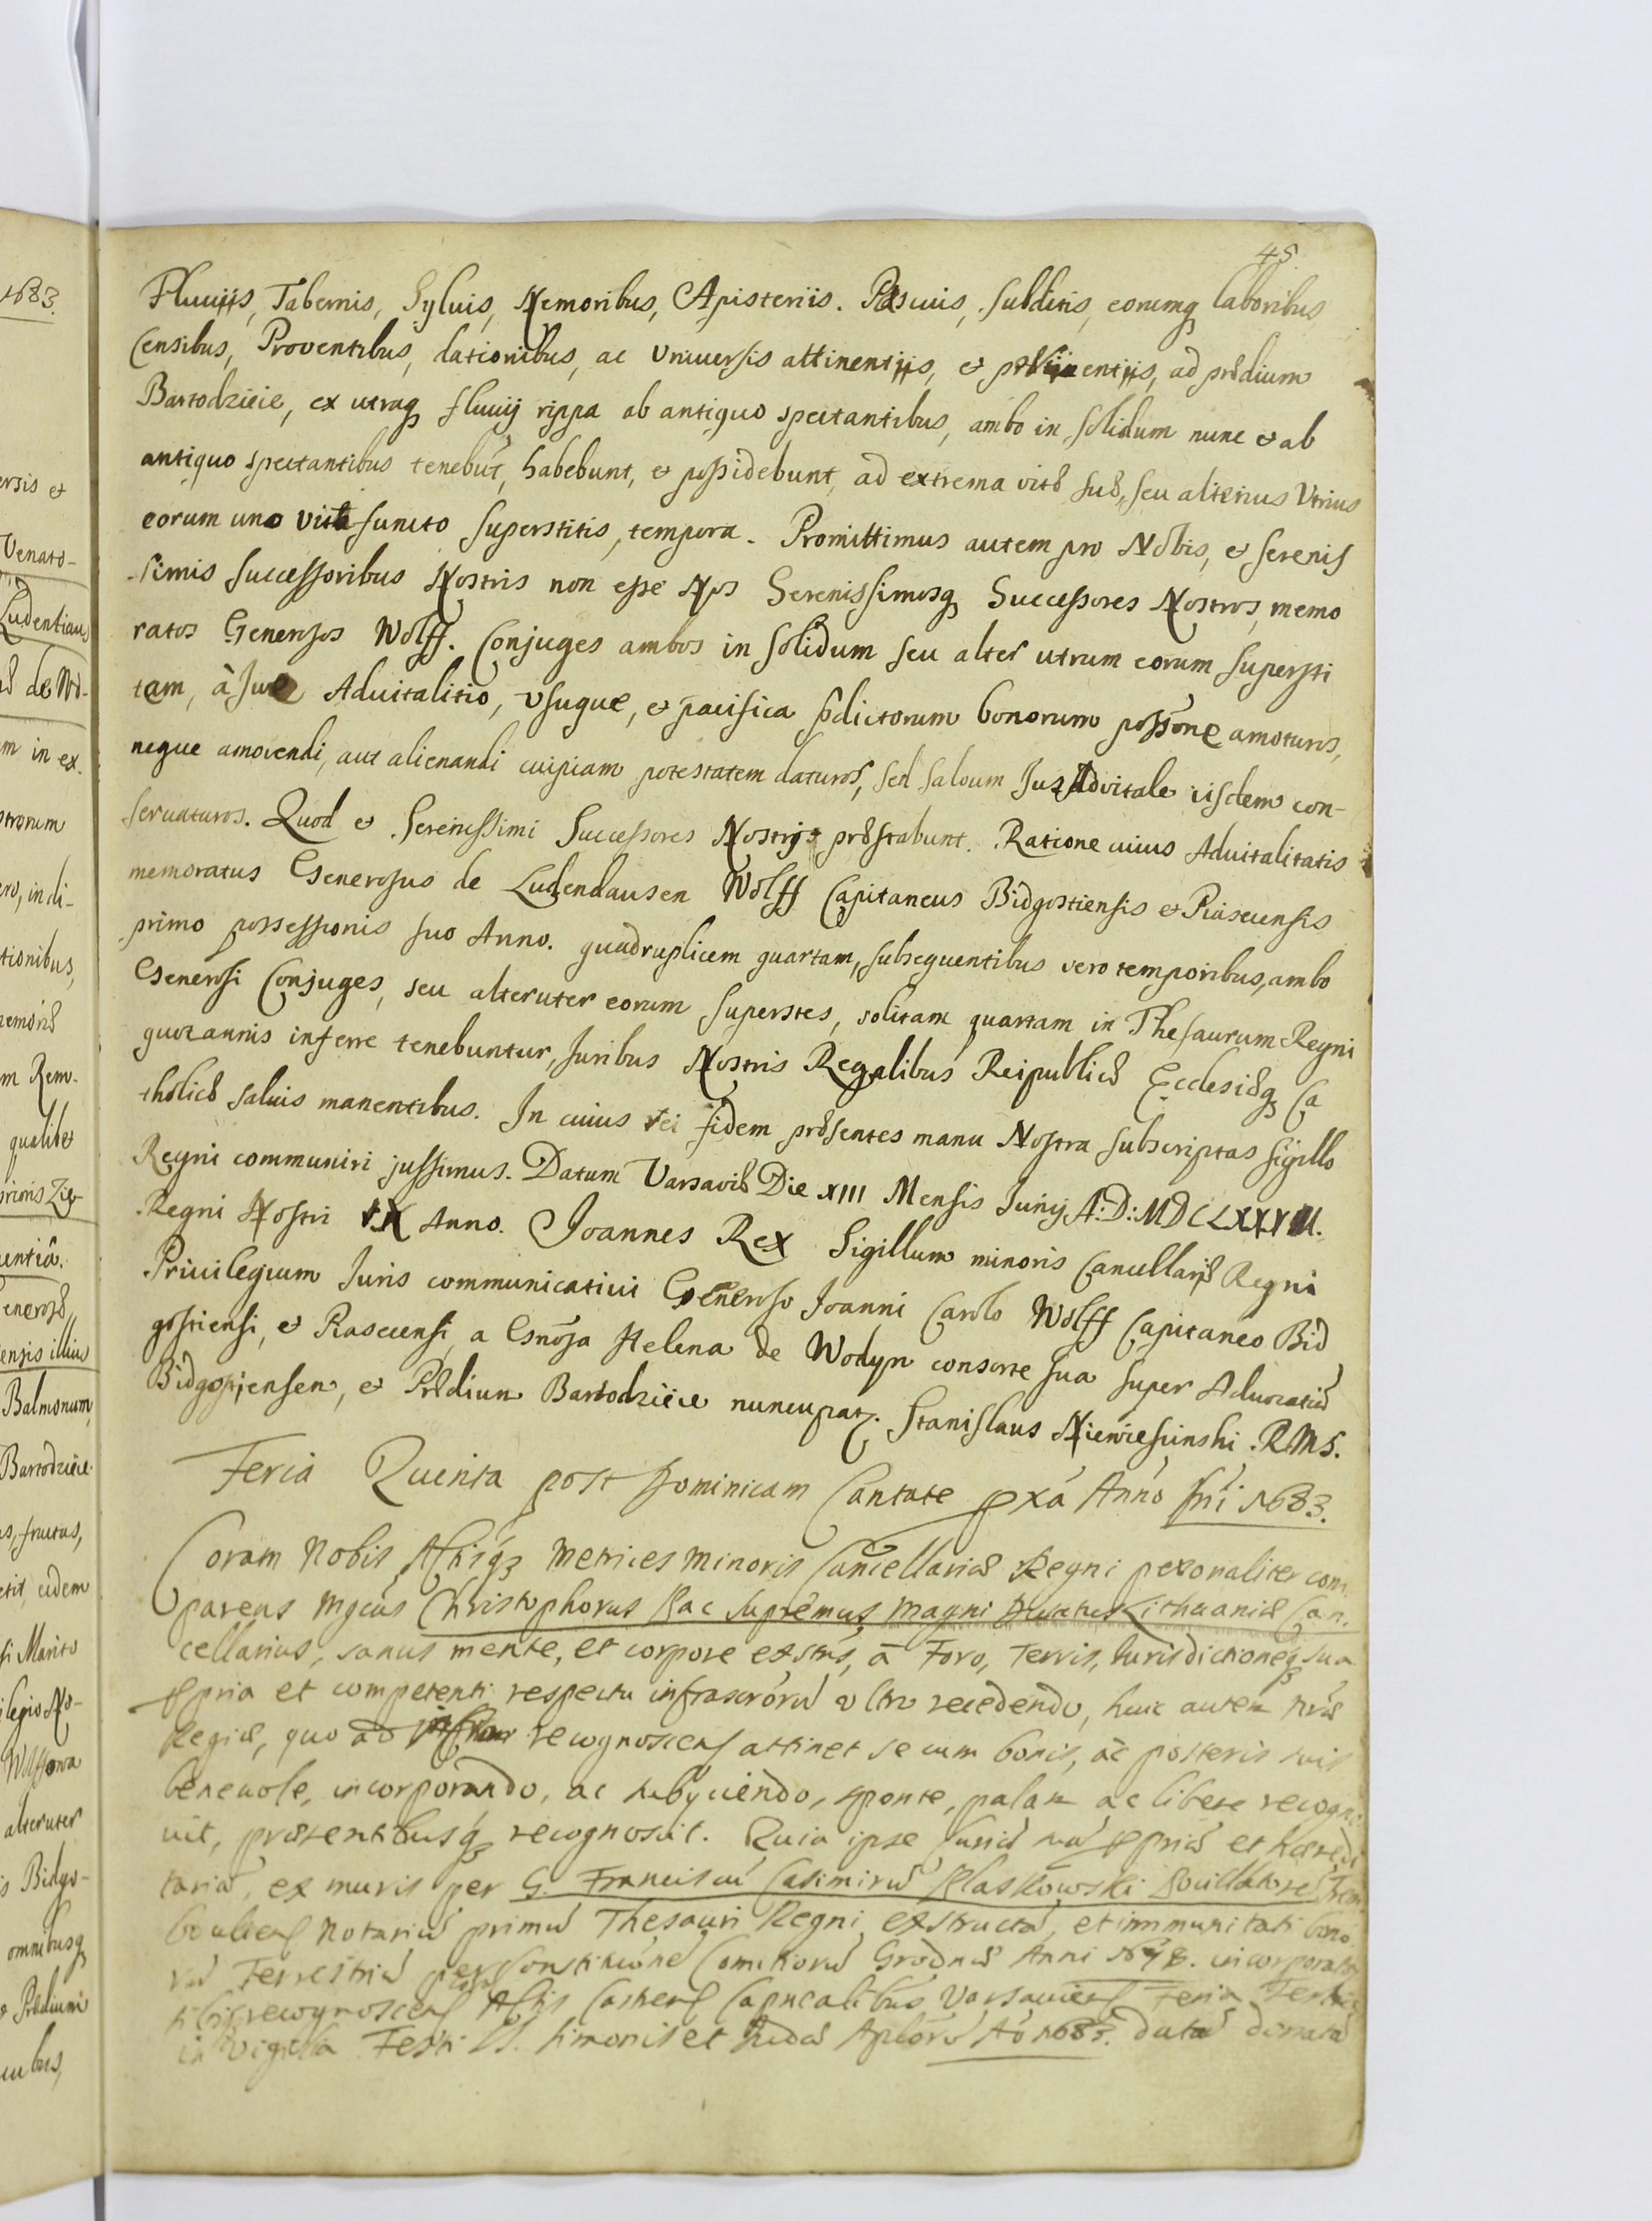 45
Fluuijs, Tabernis, Syluis, Nemoribus, Apisteriis. Pascuis, subditis, eorumq laboribus
Censibus, Proventibus, dationibus, ac Vniuersis attinentijs, et ptinentijs, ad prædium
Bartodzieie, ex utraq fluuij rippa ab antiquo spectantibus, ambo in solidum nunc et ab
antiquo spectantibus tenebūt, habebunt, et possidebunt, ad extrema vitæ suæ, seu alterius Vtrius
eorum uno vita functo superstitis, tempora. Promittimus autem pro Nobis, et serenis
simis successoribus Nostris non esse Nos Serenissimosq Successores Nostros, memo
ratos Generosos Wolff. Conjuges ambos in solidum seu alter utrum eorum supersti
tem, à Jure Aduitalitio, Vsuque, et pacifica pdictorum bonorum possone amoturos,
neque amovendi, aut alienandi cuipiam potestatem daturos, sed saluum Jus Advitale iisdem con-
seruaturos. Quod et Serenissimi Successores Nostri præstabunt. Ratione cuius Aduitalitatis
memoratus Generosus de Ludendausen Wolff Capitaneus Bidgostiensis et Piasecensis
primo possessionis suo Anno. quadruplicem quartam, subsequentibus vero temporibus, ambo
Generosi Conjuges, seu alteruter eorum superstes, solitam quartam in Thesaurum Regni
quotannis inferre tenebuntur, Juribus Nostris Regalibus Reipublicæ Ecclesiæq Ca
tholicæ saluis manentibus. In cuius rei fidem præsentes manu Nostra subscriptas sigillo
Regni communiri jussimus. Datum Varsaviæ Die XIII Mensis Junij A:D: MDCLXXXIII.
Regni Nostri IX Anno. Joannes Rex Sigillum minoris Cancellariæ Regni
Priuilegium Juris communicatiui Generoso Joanni Carolo Wolff Capitaneo Bid
gostiensi, et Piasecensi, a Gnōsa Helena de Wodyn consorte sua super Aduocatiā
Bidgostiensem, et Prædium Bartodzieie nuncupat. Stanislaus Niewiescinski. R.M.S.
Feria Quinta post Dominicam Cantate pxā Anno Dni 1683.
Coram Nobis Actisq Metrices minoris Cancellariæ Regni personaliter com
parens Mgcus Christophorus Pac Supremus Magni Ducatus Lithuaniæ Can.
cellarius, sanus mente, et corpore exstns, à Foro, Terris, Jurisdictioneq sua
ppria et competenti respectu infrascrorū vltro recedendo, huic autem nræ
Regiæ, quo ad recognoscens attinet se cum bonis, ac posteris suis
beneuole, incorporando, ac subyciendo, sponte, palam ac libere recogno
uit, præsentibusq recognoscit. Quia ipse suam ppriā et hæredi
tariā, ex muris per G. Franciscū Casimirū Klaskowski
Notariū primū Thesauri Regni, exstructā, et immunitati bono
rū Terrestriū per Constitucōne Comitiorū Grodnæ Anni 1678. incorporatā
sibi recognoscens Actis Castrens Capnealibus Varsauiens Feria Tertia
in Vigilia Festi SS. Simonis et Judæ Aplorū Aō 1682. datā donatā